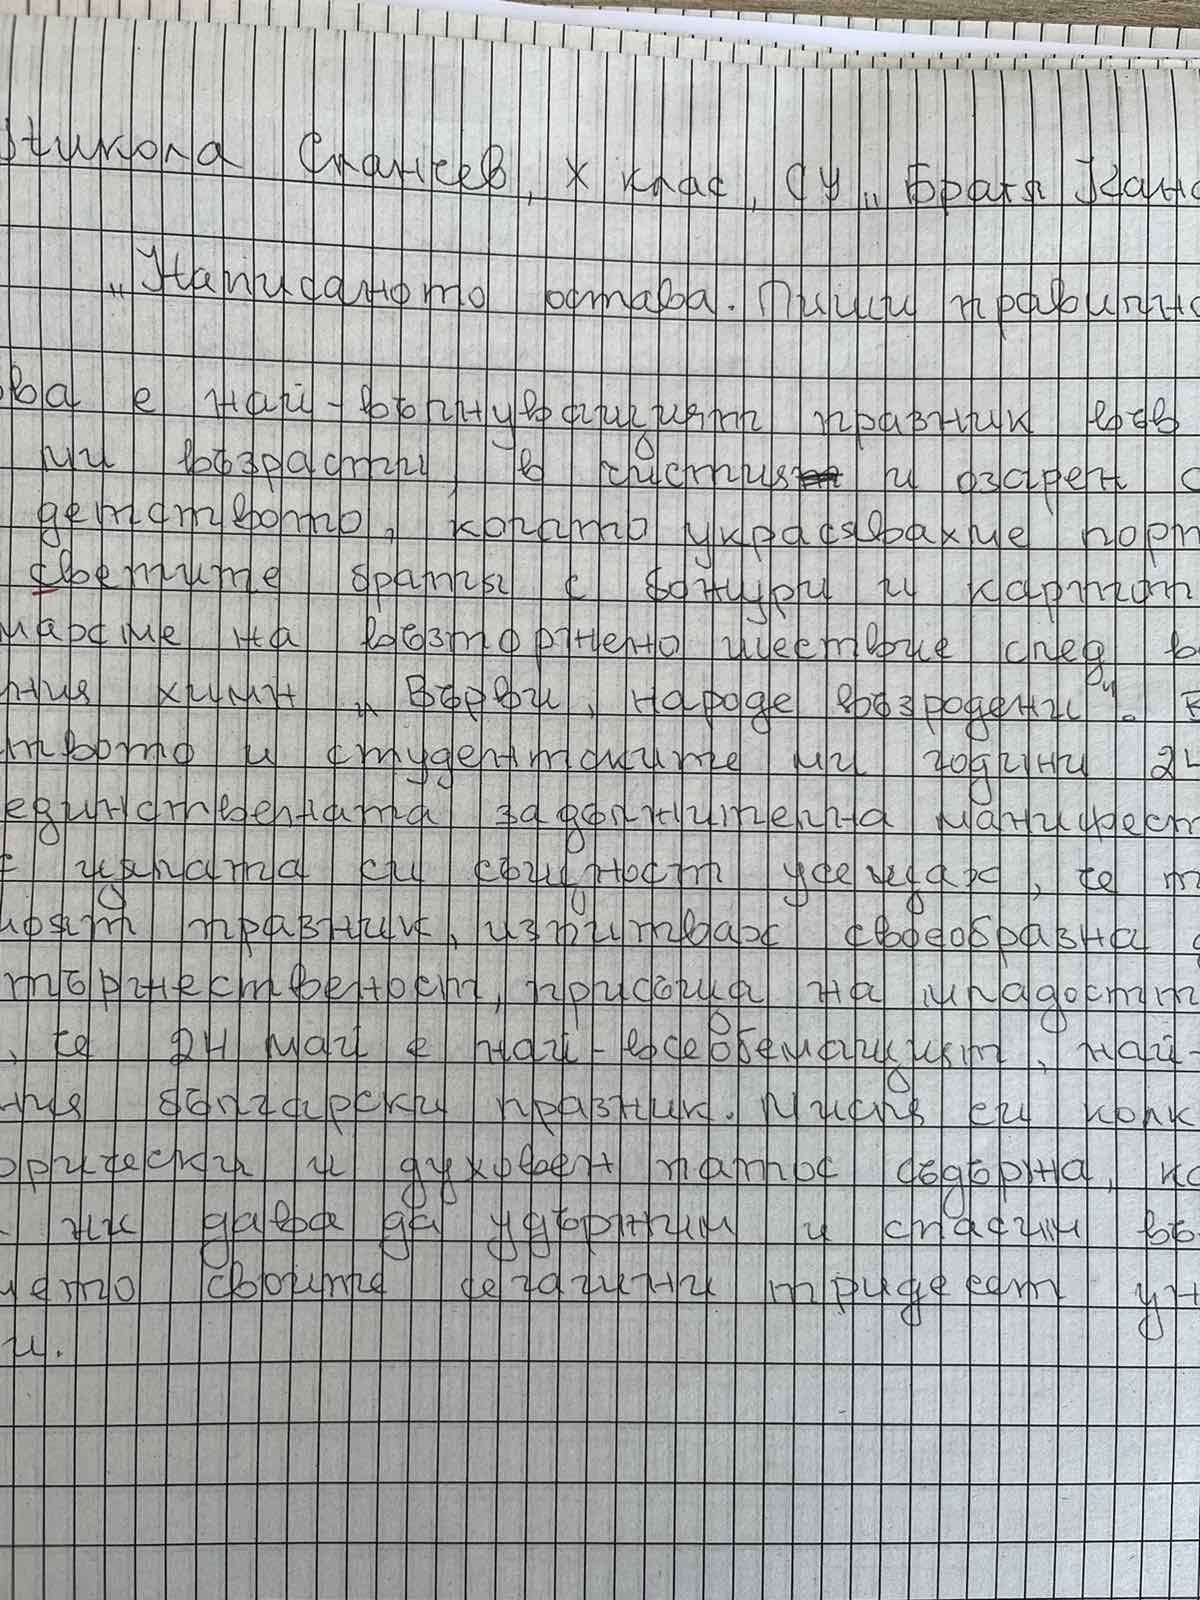 Никола Сланчев, X клас, СУ „Братя
„Написаното остава. Пиши правилно
ва е най-вълнуващият празник във
ми възрасти, в чистия и озарен
детството, когато украсявахме
светите братя с божури и
на възторжено шествие след
химн „Върви, народе възродени“.
и студентските ми години 24
единствената задължителна
цялата си същност усещах, че
празник, изпитвах своеобразна
тържественост, присъща на младостта
, че 24 май е най-всеобемащият, най-
български празник. Мисля си колко
и духовен патос съдържа,
ни дава да удържим и спасим
своите сегашни тридесет
и.